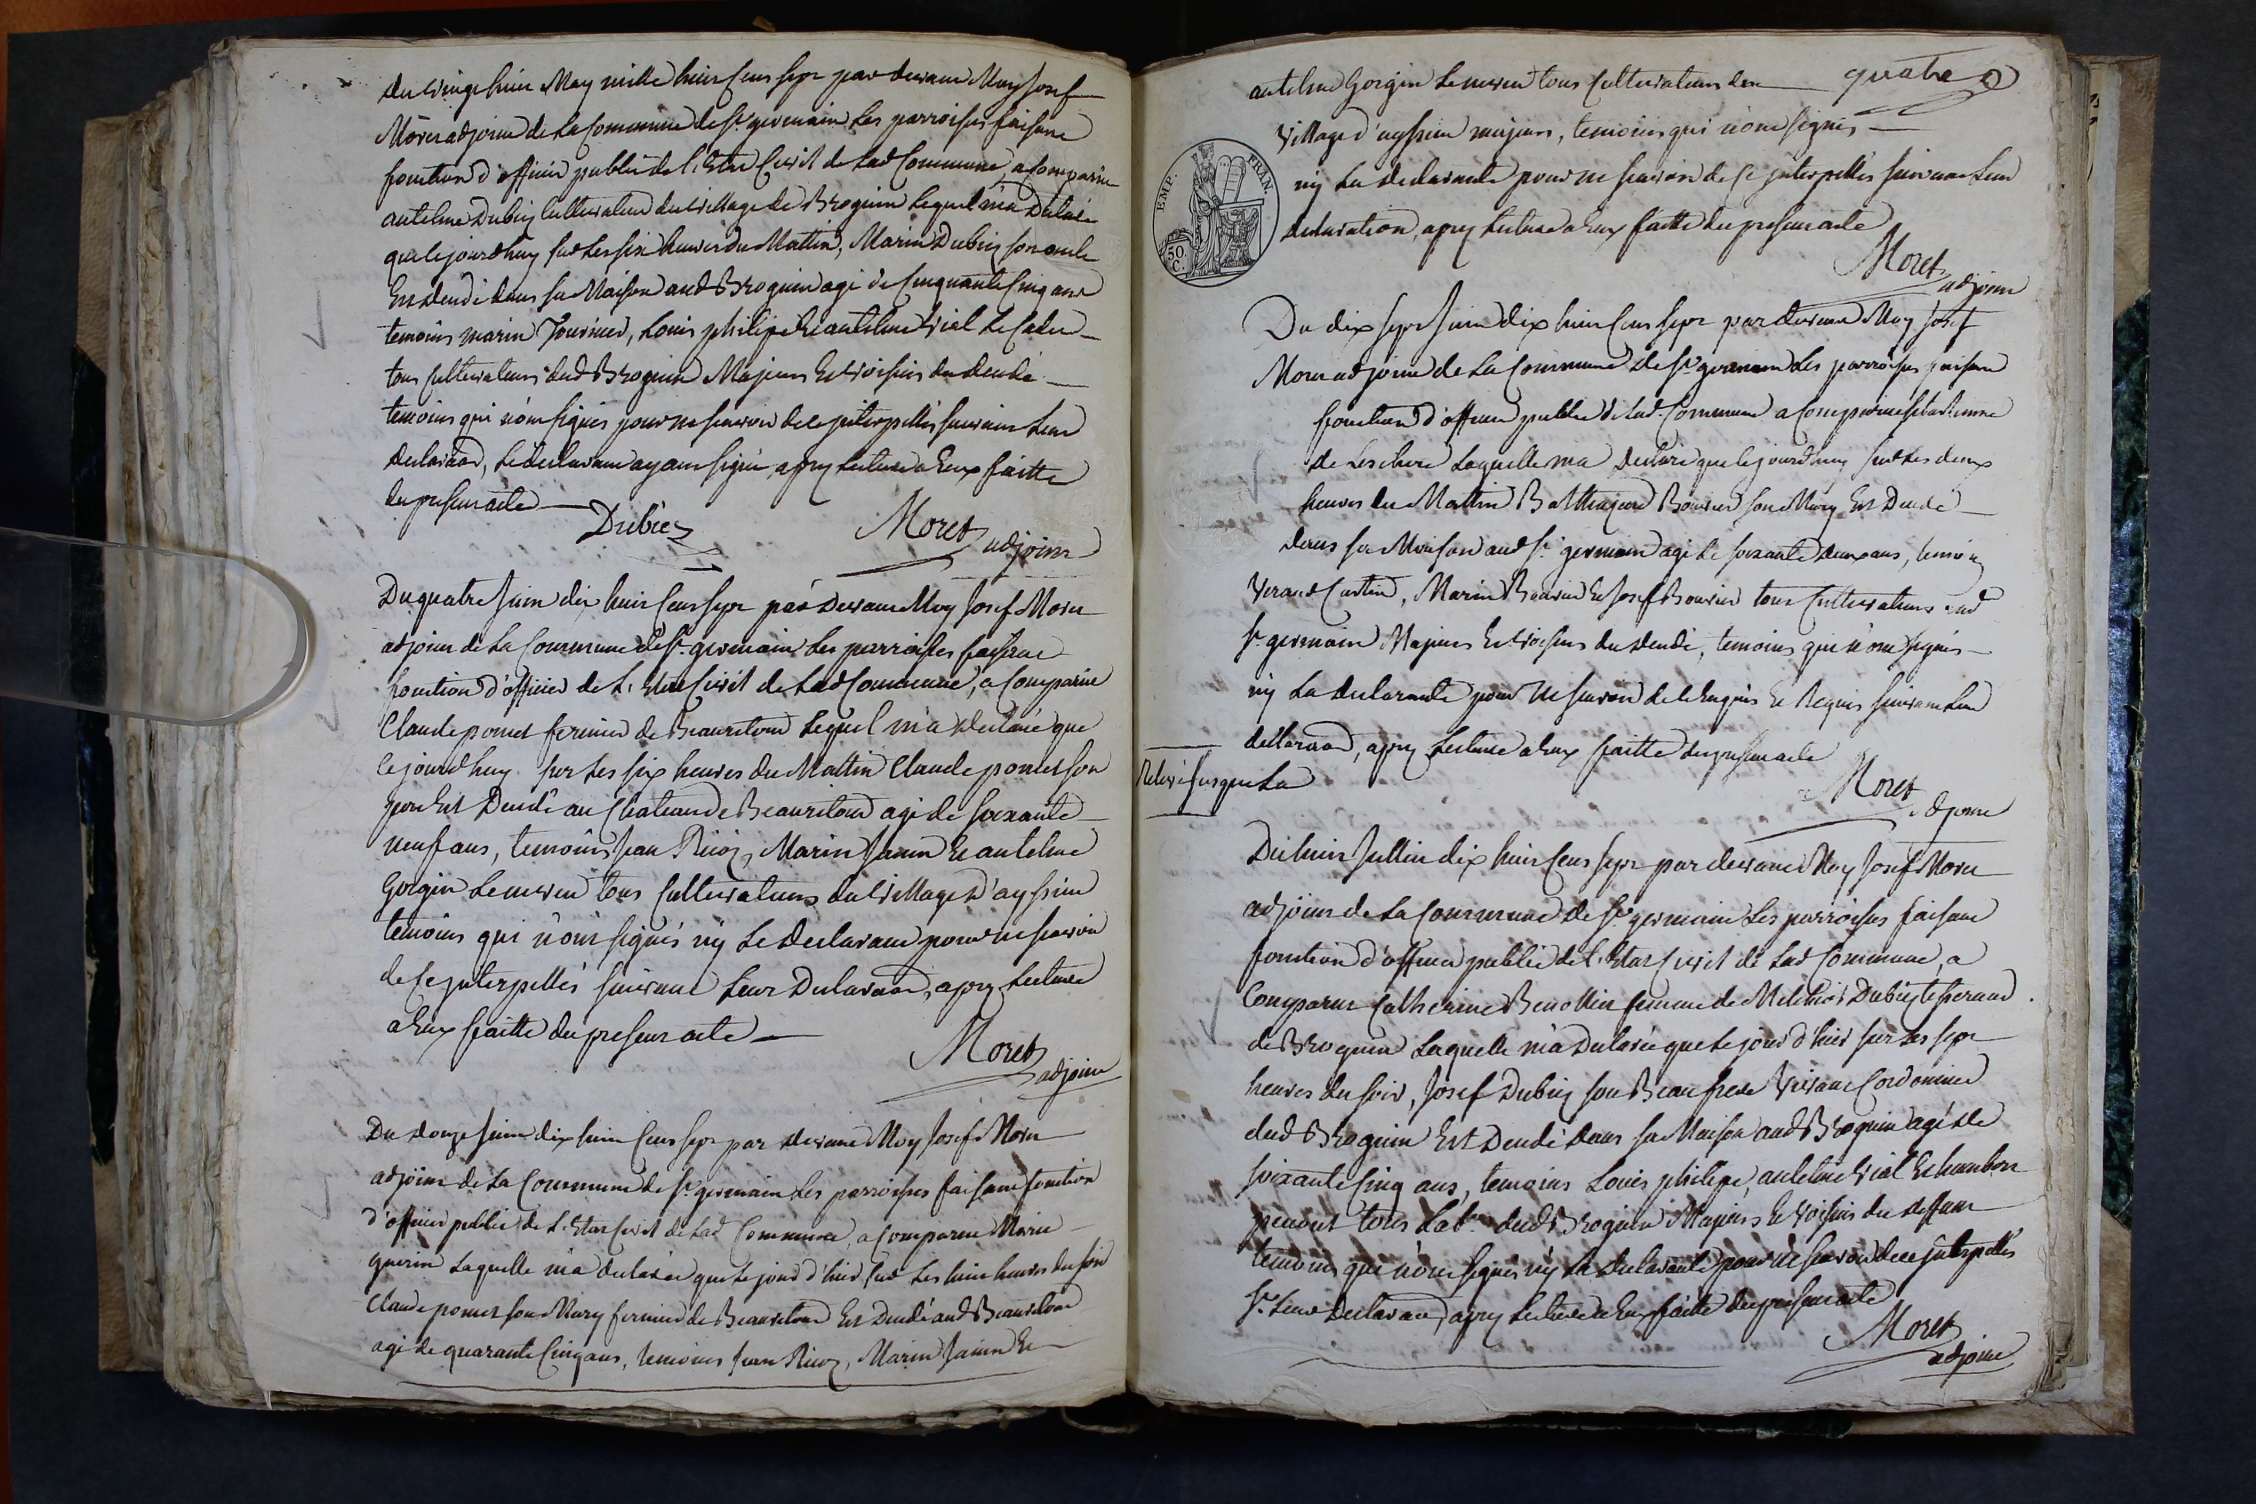 du vingt huit May mille huit Cens sept par devant Moy Josef
Moret adjoint de la Commune de St germain les parroisses faisant
fonction d'officier public de l'Etat Civil de lad Commune, a comparu
antelme Dubiez Cultivateur du village de Brognin lequel m'a Declaré
que le jourd'huy sur les six heures du Mattin, Marin Dubiez son oncle
Est decedé dans sa Maison aud Brognin agé de Cinquante Cinq ans
temoins marin Tournier, Louis philipe Et antelme Vial le Cadet
tous cultivateurs dud Brognin Majeurs Et voisins du decedé
temoins qui n'ont signés pour ne scavoir de ce interpellés suivant leur
declaraon, le declarant ayant signé, apres lecture a Eux faitte
du present acte
Dubiez Moret adjoint
Du quatre Juin dix huit Cens sept par Devant Moy Josef Moret
adjoint de la Commune de St germain les parroisses faisant
fonction d'officier de l'Etat Civil de lad Commune, a Comparu
Claude pomet fermier de Beauretour lequel m'a declaré que
ce jourd'huy sur les six heures du Mattin Claude pomet son
pere Est Decedé au Chateau de Beauretour agé de soixante
neuf ans, temoins Jean Ricoz, Marin Janin Et antelme
Gorgin le neveu tous Cultivateurs du village d'ayssieu
temoins qui n'ont signés ny le declarant pour ne scavoir
de ce interpellés suivant leur Declaraon, apres lecture
a Eux faitte du present acte
Moret adjoint
Du douze Juin dix huit Cens sept par devant Moy Josef Moret
adjoint de la Commune de St germain les parroisses faisant fonction
d'officier public de l'Etat Civil de lad Commune, a comparue Marie
guerin laquelle m'a declarée que le jour d'hier sur les huit heures du soir
Claude pomet son Mary fermier de Beauretour Est Decedé aud Beauretour
agé de quarante Cinq ans, temoins Jean Ricoz, Marin Janin Et
quatre
antelme Gorgin le neveu tous Cultivateurs du
village d'ayssieu majeurs, temoins qui n'ont signés
ny la declarante pour ne scavoir de ce interpellés suivant leur
declaration, apres lecture a Eux faitte du present acte
EMP. FRAN.
50 C.
Moret adjoint
Du dix sept Juin dix huit Cens sept par devant Moy Josef
Moret adjoint de la Commune de St germain les parroisses faisant
fonction d'officier public de lad Commune a comparue
de laquelle m'a declaré que ce jourd'huy sur les deux
heures du Mattin Balthazard Bouvier son Mary Est Decedé
dans sa Maison aud St germain agé de soixante deux ans, temoins
Verand Curtin, Marin Bouvier Et Josef Bouvier tous Cultivateurs aud
St germain Majeurs Et voisins du decedé, temoins qui n'ont signés
ny la declarante pour ne scavoir de ce Enquis Et Requis suivant leur
declaraon, apres lecture a Eux faitte du present acte
Relevé jusque la
Moret adjoint
Du huit Juillet dix huit Cens sept par devant Moy Josef Moret
adjoint de la Commune de St germain les parroisses faisant
fonction d'officier public de l'Etat Civil de lad Commune, a
Comparue Catherine Benottin femme de Melchior Dubiez
de Brognin laquelle m'a declarée que le jour d'hier sur les sept
heures du soir, Josef Dubiez son Beaufrere vivant Cordonnier
dud Brognin Est Decedé dans sa Maison aud Brognin agé de
soixante Cinq ans, temoins Louis philipe, antelme Vial Et humbert
penout tous Labr dud Brognin Majeurs Et voisins du deffunt
temoins qui n'ont signés ny la declarante pour ne scavoir de ce interpellés
St leur declaraon, apres lecture a Eux faitte du present acte
Moret adjoint